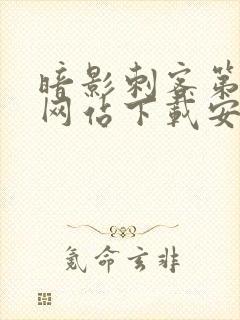 暗影刺客第
网站下载安
氪命玄非